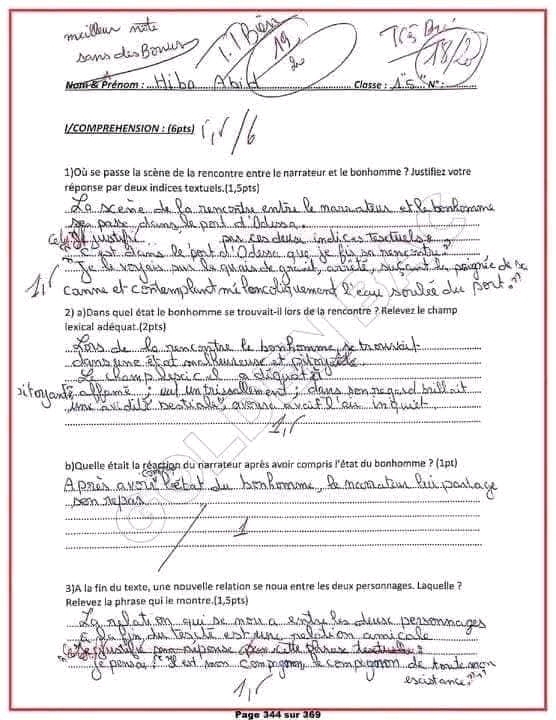 meilleur note
sans des Bonus
T.TBien
19
20
Trés Bien
18/20
Nom & Prénom : Hiba Abid Classe : 1 S N° :
I/COMPREHENSION : (6pts) 5,5/6
1)Où se passe la scène de la rencontre entre le narrateur et le bonhomme ? Justifiez votre
réponse par deux indices textuels.(1,5pts)
La scène de la rencontre entre le narrateur et le bonhomme
se passe dans le port d'Odessa.
justifié par ces deux indices textuels :
"C'est dans le port d'Odessa que je fis sa rencontre."
"Je le voyais sur le quais de granit, arrêté, suçant la poignée de sa
canne et contemplant mélancoliquement l'eau souillée du port."
1,5
2) a)Dans quel état le bonhomme se trouvait-il lors de la rencontre ? Relevez le champ
lexical adéquat.(2pts)
Lors de la rencontre le bonhomme se trouvait
dans une état malheureuse et pitoyable
Le champ lexical adéquat :
affamé ; eut un tressaillement ; dans son regard brillait
une avidité bestiale ; avait l'air inquiet
1,5
b)Quelle était la réaction du narrateur après avoir compris l'état du bonhomme ? (1pt)
Après avoir l'état du bonhomme, le narrateur lui partage
son repas
1
3)A la fin du texte, une nouvelle relation se noua entre les deux personnages. Laquelle ?
Relevez la phrase qui le montre.(1,5pts)
La relation qui se nou a entre les deux personnages
à la fin du texte est une relation amicale
justifié réponse cette phrase textuelle :
je pensai : "il est mon compagnon, le compagnon de toute mon
existance."
1,5
GOLDEN
Page 344 sur 369